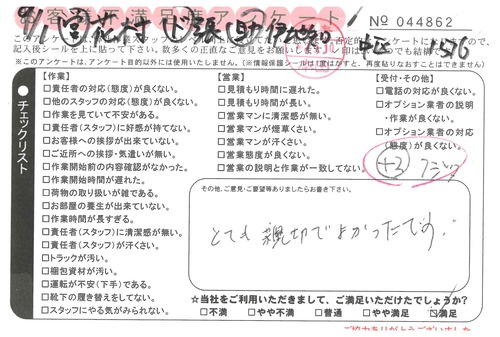 お客様不満足度アンケート
No 044862
※このアンケートは、アンケート目的以外には使用いたしません。(※情報保護シールは1度はがすと、再度貼りなおすことはできません)
チェックリスト
【作業】
□責任者の対応(態度)が良くない。
□他のスタッフの対応(態度)が良くない。
□作業を見ていて不安がある。
□責任者(スタッフ)に好感が持てない。
□お客様への挨拶が出来ていない。
□ご近所への挨拶・気遣いが無い。
□作業開始前の内容確認がなかった。
□作業開始時間が遅れた。
□荷物の取り扱いが雑である。
□お部屋の養生が出来ていない。
□作業時間が長すぎる。
□責任者(スタッフ)に清潔感が無い。
□責任者(スタッフ)が汗くさい。
□トラックが汚い。
□梱包資材が汚い。
□運転が不安(下手)である。
□靴下の履き替えをしてない。
□スタッフにやる気がみられない。
【営業】
□見積もり時間に遅れた。
□見積もり時間が長い。
□営業マンに清潔感が無い。
□営業マンが煙草くさい。
□営業マンが汗くさい。
□営業態度が良くない。
□営業の説明と作業が一致してない。
【受付・その他】
□電話の対応が良くない。
□オプション業者の説明
・作業が良くない。
□オプション業者の対応
(態度)が良くない。
その他、ご意見・ご要望等ありましたらお書き下さい。
とても親切でよかったです。
☆当社をご利用いただきまして、ご満足いただけたでしょうか?
□不満 □やや不満 □普通 □やや満足 ☑満足
ご協力ありがとうございました